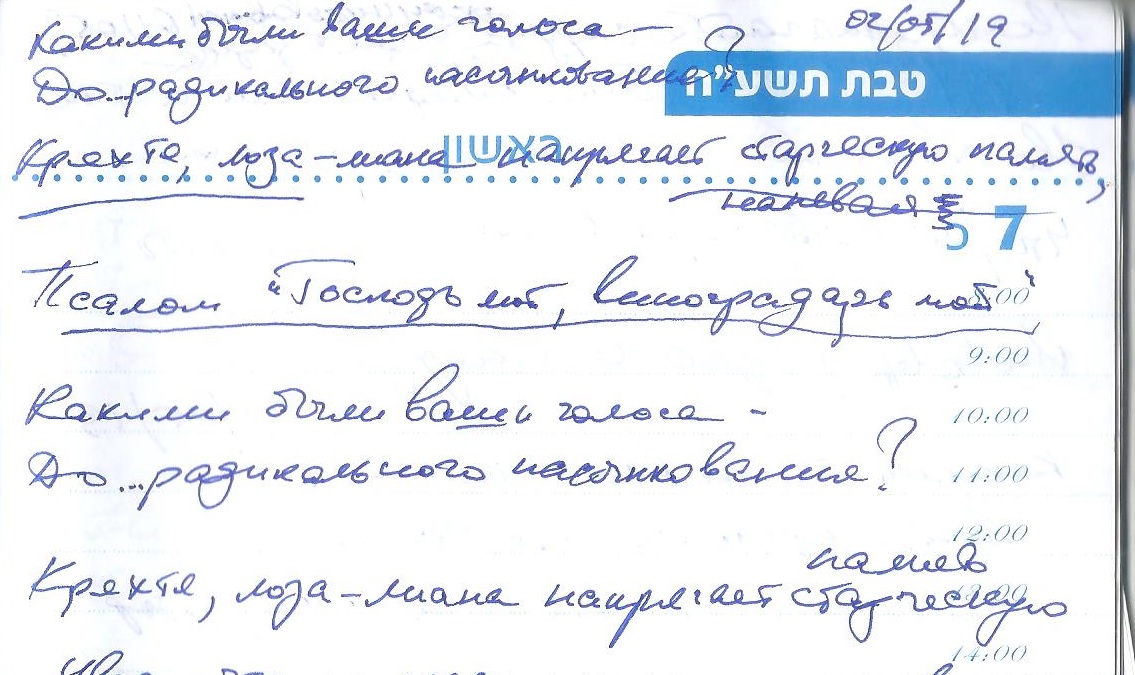 Какими были ваши голоса – 02/05/19
До...радикального пасынкования?
טבת תשע"ח
Кряхтя, лоза-лиана напрягает старческую память,
ראשון
напевая
7 כ
Псалом "Господь мой, виноградарь мой"
8:00
9:00
Какими были ваши голоса –
10:00
До...радикального пасынкования?
11:00
12:00
память
Кряхтя, лоза-лиана напрягает старческую
13:00
14:00